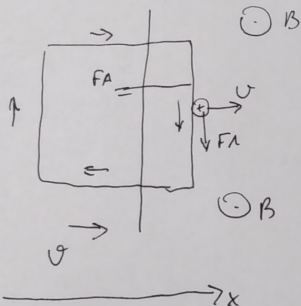 B
FA
+
v
FA
B
v
x